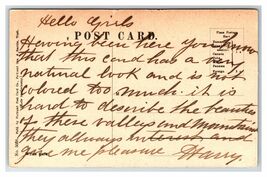 Hello Girls
POST CARD.
Having been here you know
that this card has a very
natural look and is not
colored too much. it is
hard to describe the beauties
of these valleys and Mountains
they always interest and
me pleasure Harry